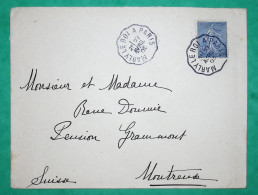 MARLY LE ROI A PARIS
MARLY LE ROI
Monsieur et Madame
René Doumic
Pension Grammont
Suisse Montreux